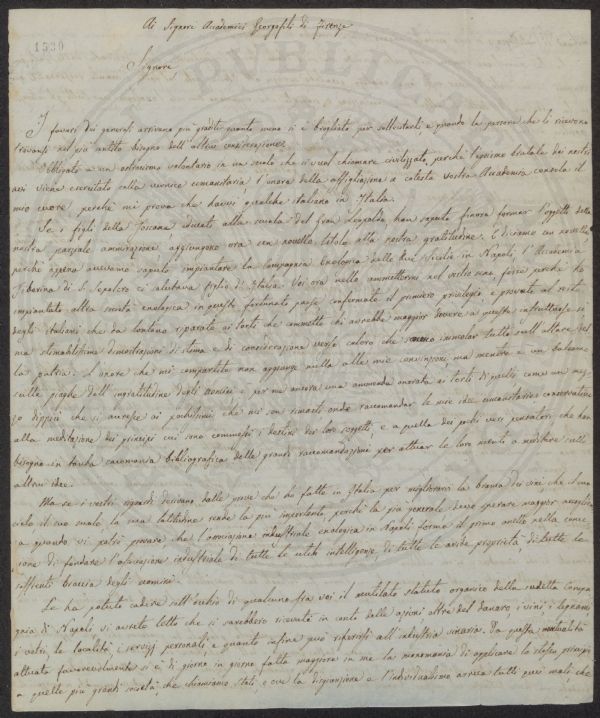 Ai Signori Accademici Georgofili di Firenze
1530
PUBLICA
Signore,
I favori dei generali arrivano più graditi quanto meno si è brogliato per sollecitarli e quando la persona che li riceve
trovasi nel più sentito bisogno dell'altrui considerazione.
Obbligato a un ostracismo volontario in un secolo che si vuol chiamare civilizzato, perché
avi viene esercitato colla vernice umanitaria l'onore dell'affigliazione a codesta vostra Accademia consola il
mio cuore, perché mi prova che havvi qualche italiano in Italia.
Se i figli della Toscana educati alla scuola del gran Leopoldo, han saputo finora formar l'oggetto della
nostra parziale ammirazione aggiungono ora un novello titolo alla nostra gratitudine. E diciamo un novello,
perché appena avevamo saputo impiantare la Compagnia Enologica delle due Sicilie in Napoli, l'Accademia
Tiberina di S. Sepolcro ci salutava figlio d'Italia. Voi ora nello ammettermi nel vostro seno, forse perché ho
impiantato altra società enologica in questo fortunato paese confermate il primiero privilegio e provate al resto
degli italiani che da lontano riparate ai torti che commette chi avrebbe maggior dovere a queste infruttuose sì
ma stimabilissime dimostrazioni di stima e di considerazione verso coloro che sanno immolar tutto sull'altare del
la patria. L'onore che mi compartite non aggiunge nulla alle mie convinzioni, ma mentre è un balsamo
sulle piaghe dell'ingratitudine degli uomini è per me ancora una ammenda onorata ai torti di questi, come un mez
zo dippiù che si accresce ai pochissimi che mi son rimasti onde raccomandar le mie idee umanitarie conservatrici
alla meditazione dei principi cui sono commessi i destini dei loro soggetti, e a quella dei pochi veri pensatori che han
bisogno in tanta bibliografica della grande raccomandazione per attivar le loro menti a meditare sulle
altrui idee.
Ma se i vostri riguardi derivano dalle prove che ho fatte in Italia per migliorarvi la branca dei vini, che il suo
cielo il suo suolo, la sua latitudine rende la più importante, perché la più generale debbo sperare maggior accoglienza
a quando vi potrò provare che l'associazione industriale enologica in Napoli forma il primo anello nella conce
zione di fondare l'associazione industriale di tutte le utili intelligenze di tutte le avide proprietà di tutte le
sofferenti braccia degli uomini.
Se ha potuto cadere sott'occhio di qualcuno fra voi il mutilato statuto organico della sudetta Compa
gnia di Napoli vi avrete letto che si sarebbero ricevuti in conto delle azioni oltre del danaro, i vini, i legnami
i vetri, le località, i servizj personali e quanto infine può riferirsi all'industria vinaria. Da questa mutualità
attuata favorevolmente si è di giorno in giorno fatta maggiore in me la monomania di applicare lo stesso principio
a quelle più grandi società, che chiamiamo Stati, e ove la disgiunzione e l'individualismo arreca tutti quei mali che